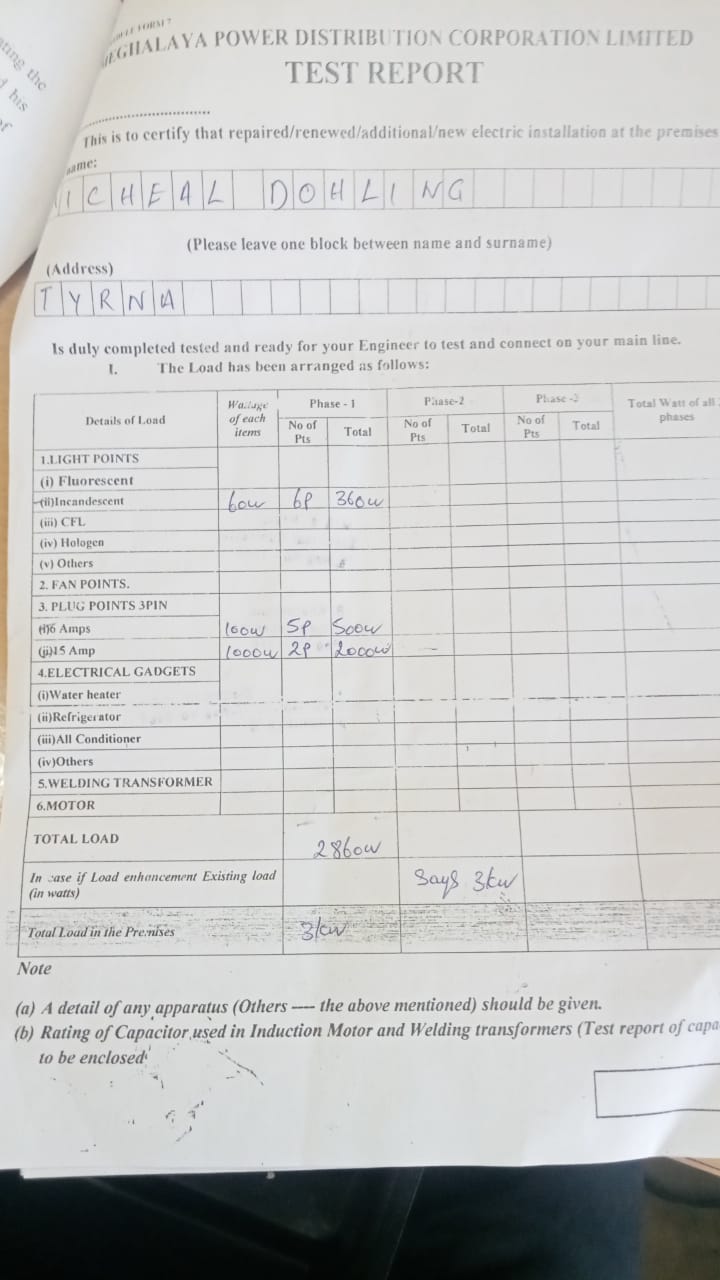 FORM 7
MEGHALAYA POWER DISTRIBUTION CORPORATION LIMITED
TEST REPORT
ting the
his
of
This is to certify that repaired/renewed/additional/new electric installation at the premises
name:
ICHEAL DOHLING
(Please leave one block between name and surname)
(Address)
TYRNA
Is duly completed tested and ready for your Engineer to test and connect on your main line.
I. The Load has been arranged as follows:
Details of Load Wattage of each items Phase - 1 Phase-2 Phase -3 Total Watt of all phases
No of Pts Total No of Pts Total No of Pts Total
1.LIGHT POINTS
(i) Fluorescent
(ii)Incandescent 60W 6P 360W
(iii) CFL
(iv) Hologen
(v) Others
2. FAN POINTS.
3. PLUG POINTS 3PIN
(i)6 Amps 100W 5P 500W
(ii)15 Amp 1000W 2P 2000W
4.ELECTRICAL GADGETS
(i)Water heater
(ii)Refrigerator
(iii)All Conditioner
(iv)Others
5.WELDING TRANSFORMER
6.MOTOR
TOTAL LOAD 2860W
In case if Load enhancement Existing load (in watts) Says 3kw
Total Load in the Premises 3kw
Note
(a) A detail of any apparatus (Others ---- the above mentioned) should be given.
(b) Rating of Capacitor used in Induction Motor and Welding transformers (Test report of capa
to be enclosed